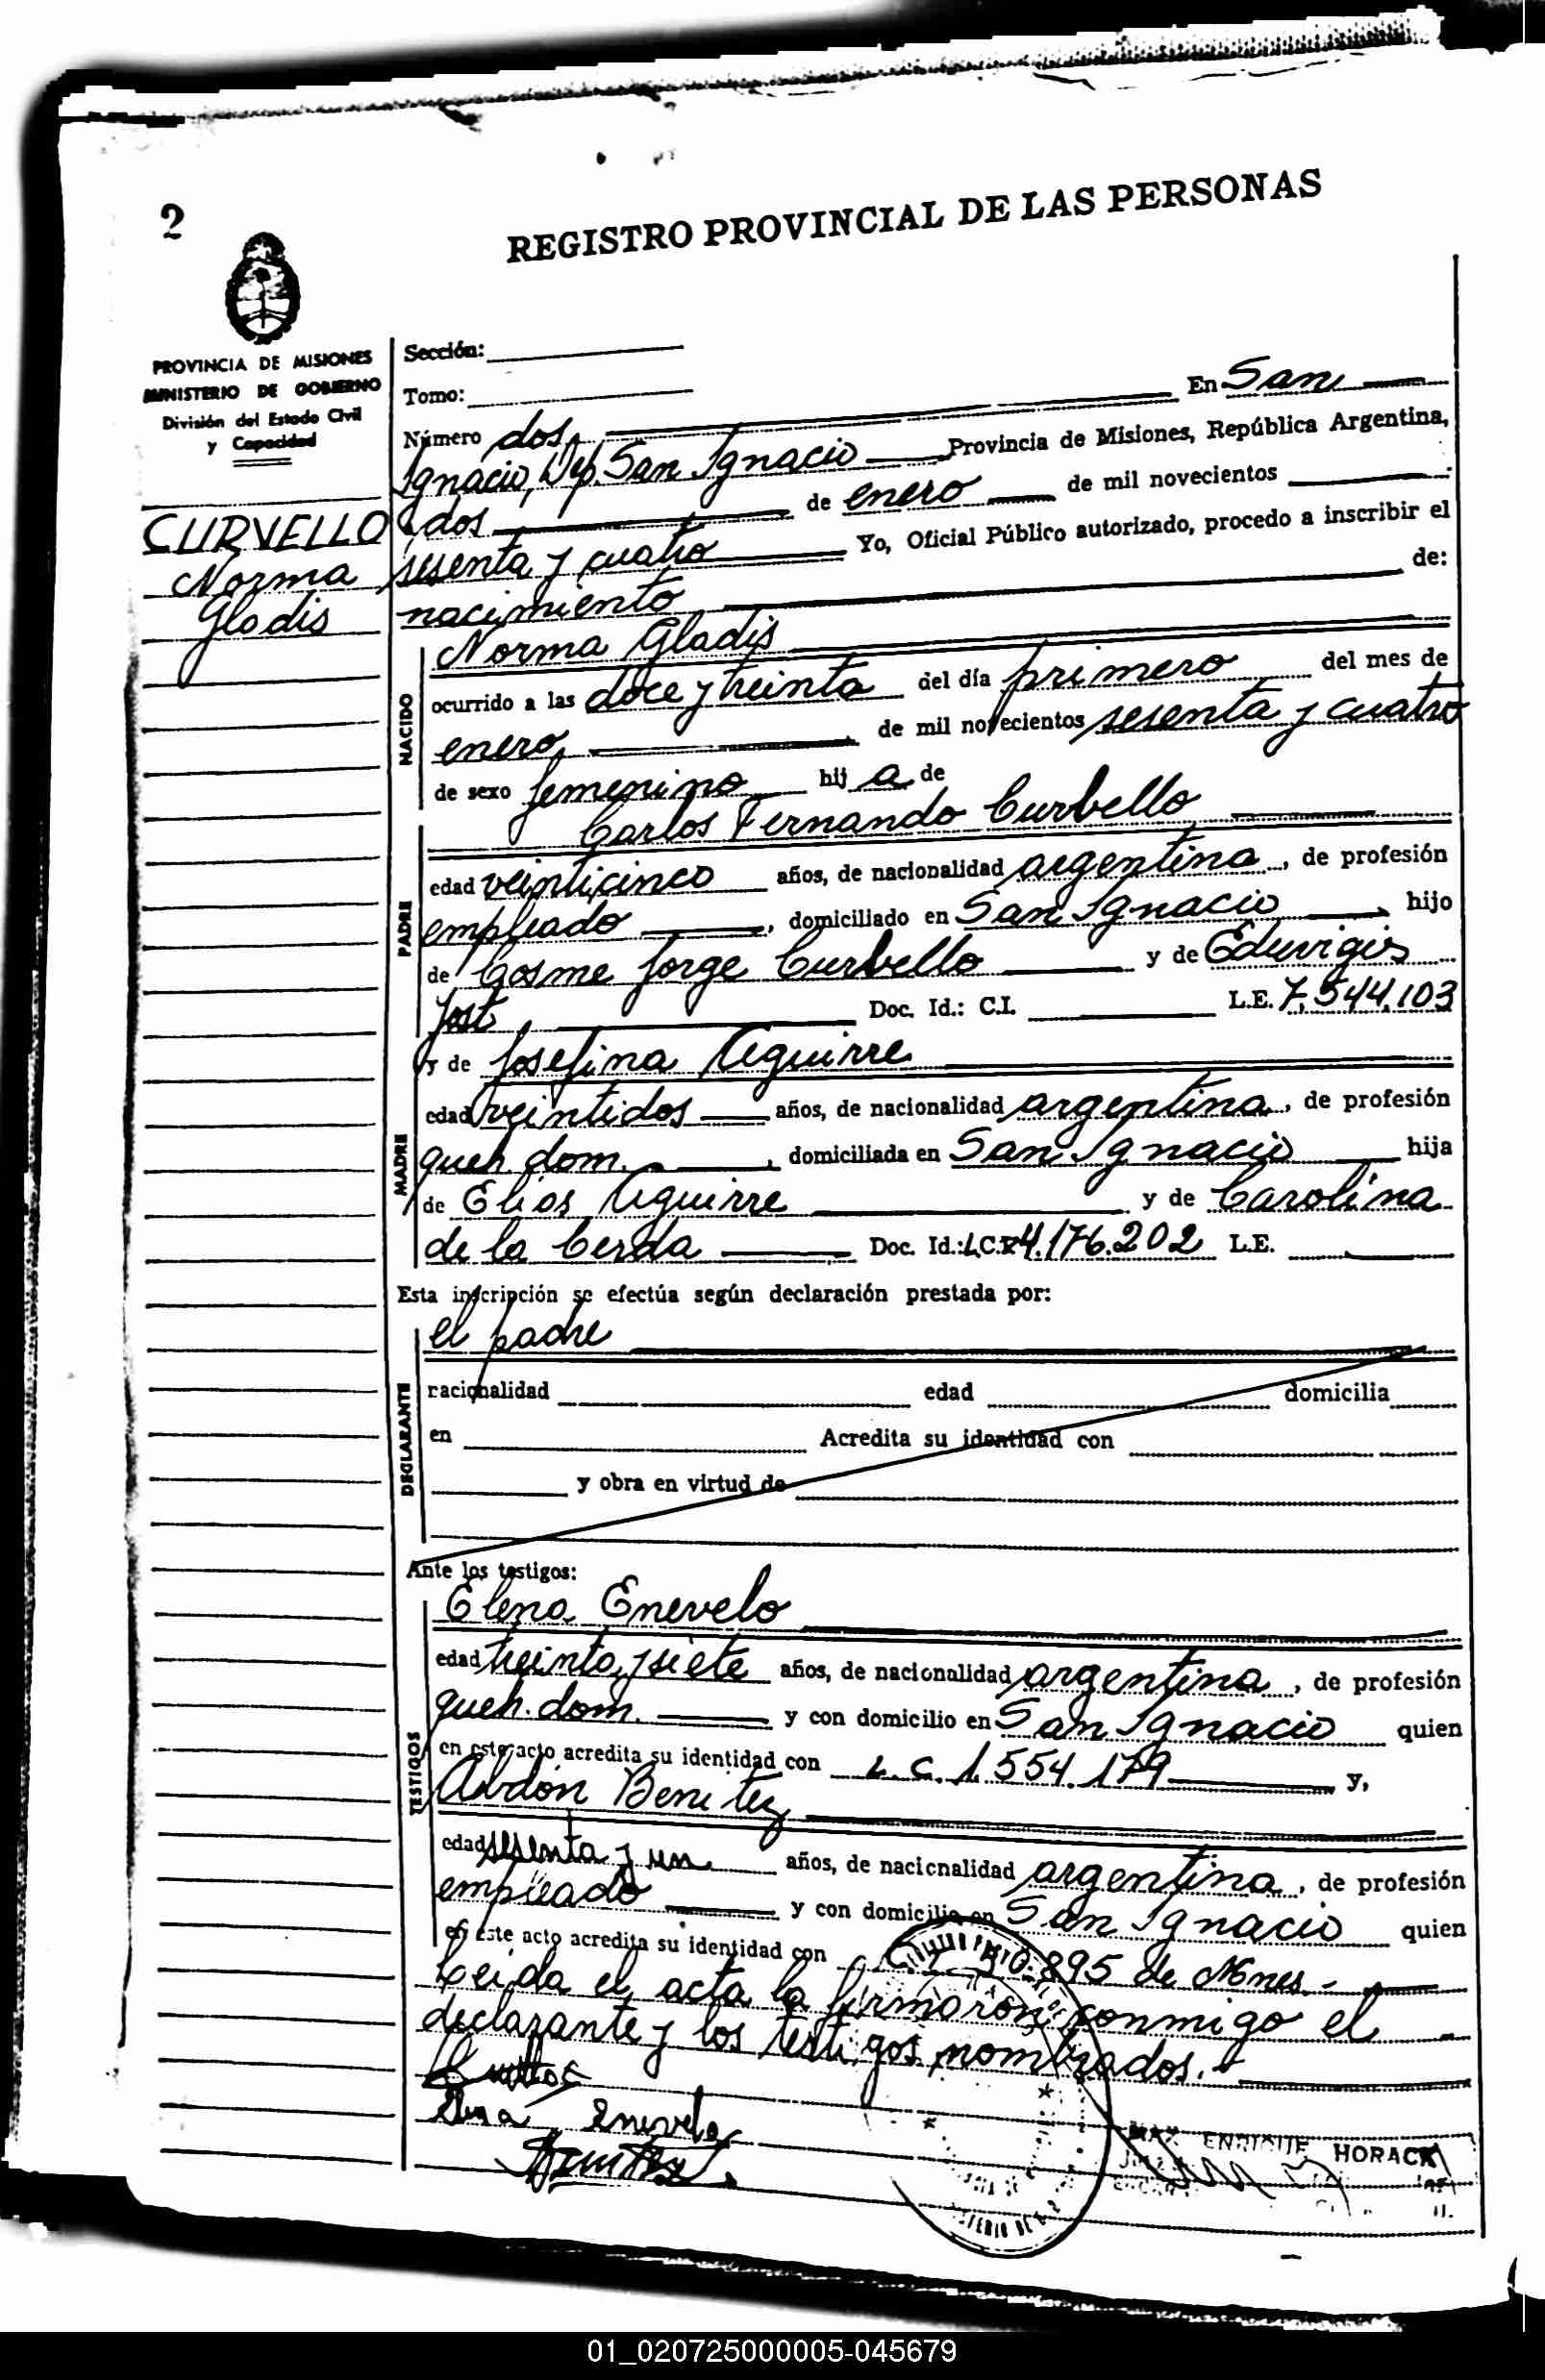 2
REGISTRO PROVINCIAL DE LAS PERSONAS
PROVINCIA DE MISIONES
MINISTERIO DE GOBIERNO
División del Estado Civil
y Capacidad
CURVELLO
Norma
Gladis
Sección:
Tomo:
Número dos En San
Ignacio, Dep. San Ignacio Provincia de Misiones, República Argentina,
a dos de enero de mil novecientos
sesenta y cuatro Yo, Oficial Público autorizado, procedo a inscribir el
nacimiento de:
NACIDO
Norma Gladis
ocurrido a las doce y treinta del día primero del mes de
enero de mil novecientos sesenta y cuatro
de sexo femenino hij a de
PADRE
Carlos Fernando Curbello
edad veinticinco años, de nacionalidad argentina, de profesión
empleado, domiciliado en San Ignacio, hijo
de Cosme Jorge Curbello y de Eduvigis
Jost Doc. Id.: C.I. L.E. 7.544.103
MADRE
y de Josefina Aguirre
edad veintidos años, de nacionalidad argentina, de profesión
queh. dom., domiciliada en San Ignacio hija
de Elios Aguirre y de Carolina
de la Cerda Doc. Id.: L.C. 4.176.202 L.E.
Esta inscripción se efectúa según declaración prestada por:
DECLARANTE
el padre
racionalidad edad domicilia
en Acredita su identidad con
y obra en virtud de
Ante los testigos:
TESTIGOS
Elena Enevelo
edad treinta y siete años, de nacionalidad argentina, de profesión
queh. dom. y con domicilio en San Ignacio quien
en este acto acredita su identidad con L.C. 1.554.179 y,
Abdón Benitez
edad sesenta y un años, de nacionalidad argentina, de profesión
empleado y con domicilio en San Ignacio quien
en este acto acredita su identidad con 895 de Mnes.-
Leida el acta la firmaron conmigo el
declarante y los testigos nombrados.
Enevelo
Benitez
MAX ENRIQUE HORACK
01_020725000005-045679